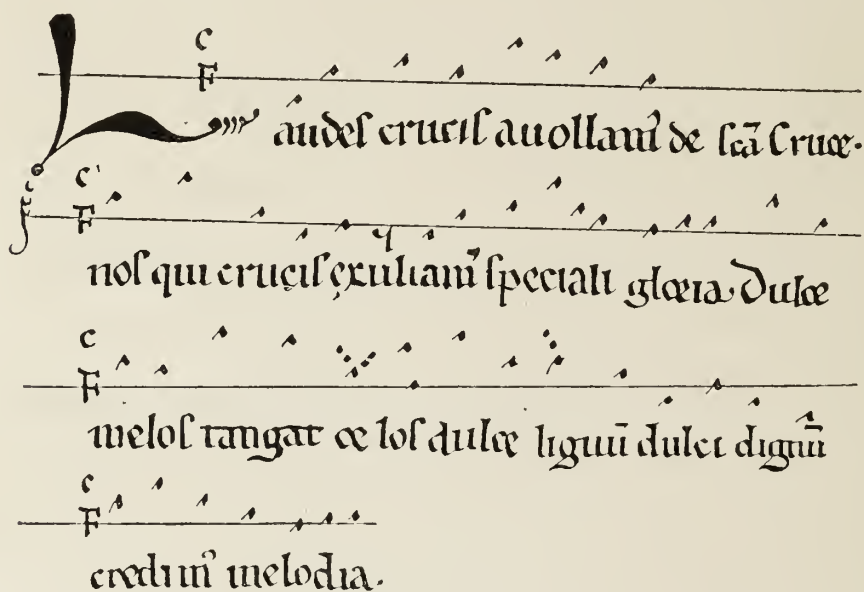 C
F
Laudeſ cruciſ attollamꝰ de ſcā Cruce.
C
F
noſ qui cruciſ exultamꝰ ſpeciali gloria. Dulce
C
F
meloſ tangat ce loſ dulce lignū dulci dignū
C
F
credi mꝰ melodia.